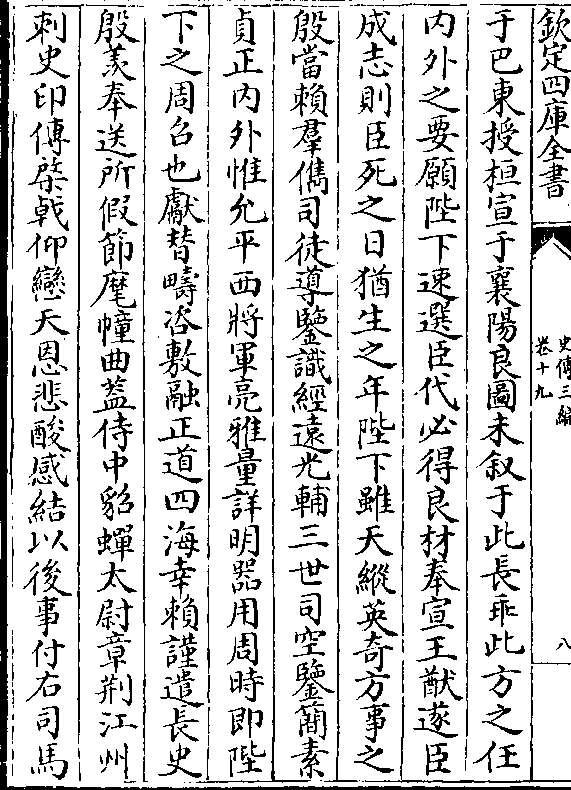 欽定四庫全書
史傳三編
卷十九
八
于巴東授桓宣于襄陽良圖未叙于此長乖此方之任
内外之要願陛下速選臣代必得良材奉宣王猷遂臣
成志則臣死之日猶生之年陛下雖天縱英奇方事之
殷當賴羣儁司徒導鑒識經遠光輔三世司空鑒簡素
貞正内外惟允平西將軍亮雅量詳明器用周時即陛
下之周召也獻替疇咨敷融正道四海幸賴謹遣長史
殷羡奉送所假節麾幢曲蓋侍中貂蟬太尉章荆江州
刺史印傳棨㦸仰戀天恩悲酸感結以後事付右司馬